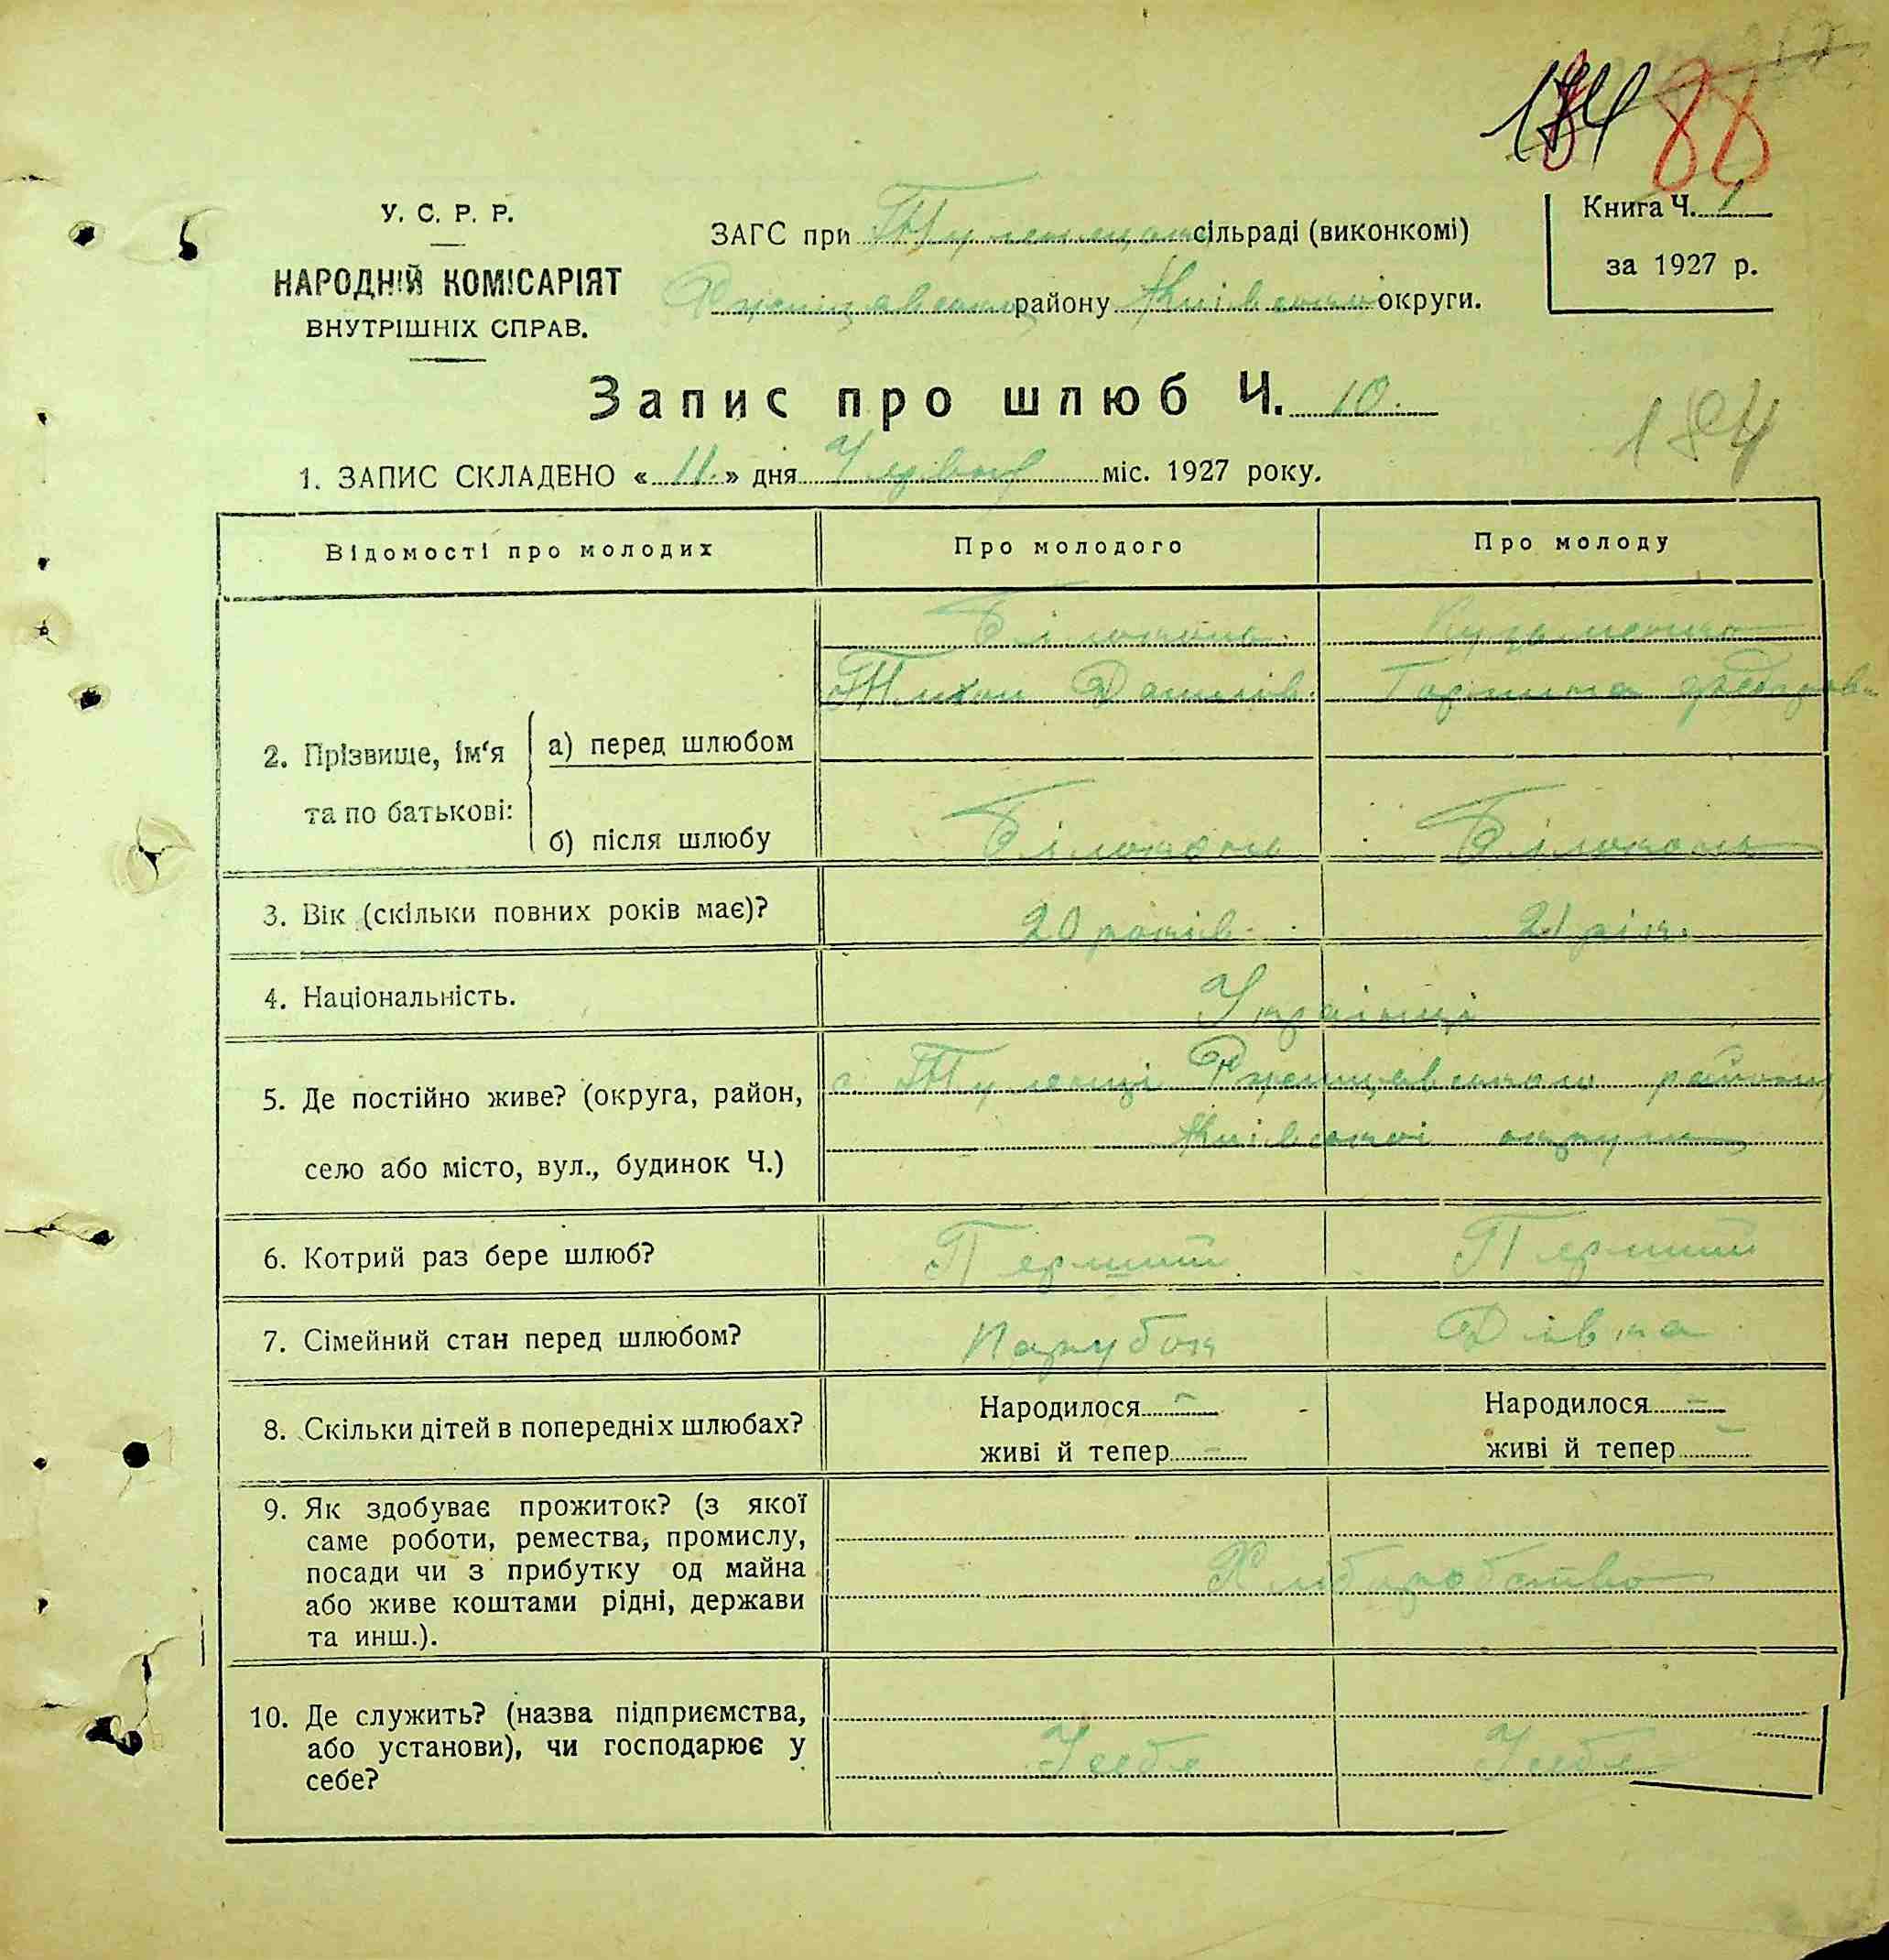 184 88
У. С. Р. Р.
НАРОДНІЙ КОМІСАРІЯТ
ВНУТРІШНІХ СПРАВ.
ЗАГС при сільраді (виконкомі)
району Київської округи.
Книга Ч. 1
за 1927 р.
Запис про шлюб Ч. 10.
184
1. ЗАПИС СКЛАДЕНО « 11. » дня міс. 1927 року.
Відомості про молодих Про молодого Про молоду
Білоконь. Кузьменко
Тихон Данилів. Горпина Федоров
2. Прізвище, ім'я та по батькові:
а) перед шлюбом
б) після шлюбу Білоконь Білоконь
3. Вік (скільки повних років має)? 20 років. 21 рік.
4. Національність. Українці
5. Де постійно живе? (округа, район, с. Туленці Ржищівського району
село або місто, вул., будинок Ч.) Київської округи
6. Котрий раз бере шлюб? Перший Перший
7. Сімейний стан перед шлюбом? Парубок Дівка
8. Скільки дітей в попередніх шлюбах? Народилося – Народилося –
живі й тепер – живі й тепер –
9. Як здобуває прожиток? (з якої
саме роботи, ремества, промислу,
посади чи з прибутку од майна Хліборобство
або живе коштами рідні, держави
та инш.).
10. Де служить? (назва підприємства,
або установи), чи господарює у У себе У себе
себе?